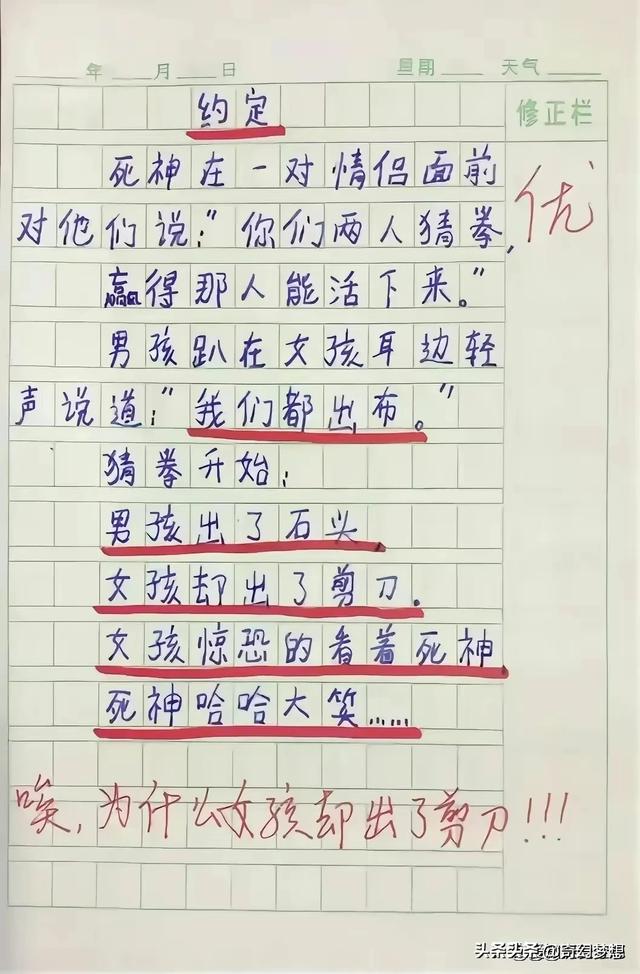 年 月 日 星期 天气
约定
修正栏
死神在一对情侣面前
对他们说:"你们两人猜拳,
优
赢得那人能活下来。"
男孩趴在女孩耳边轻
声说道:"我们都出布。"
猜拳开始:
男孩出了石头,
女孩却出了剪刀。
女孩惊恐的看着死神,
死神哈哈大笑……
唉,为什么女孩却出了剪刀!!!
头条 @奇幻梦想